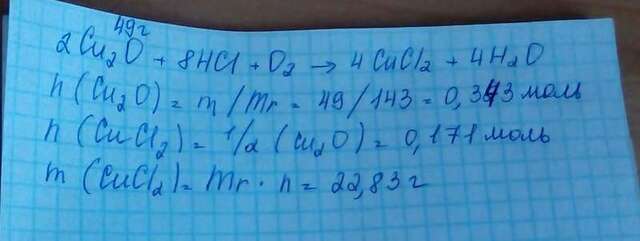 49г
2Cu₂O + 8HCl + O₂ → 4CuCl₂ + 4H₂O
n (Cu₂O) = m/Mr = 49/143 = 0,343 моль
n (CuCl₂) = 1/2 (Cu₂O) = 0,171 моль
m (CuCl₂) = Mr · n = 22,83 г